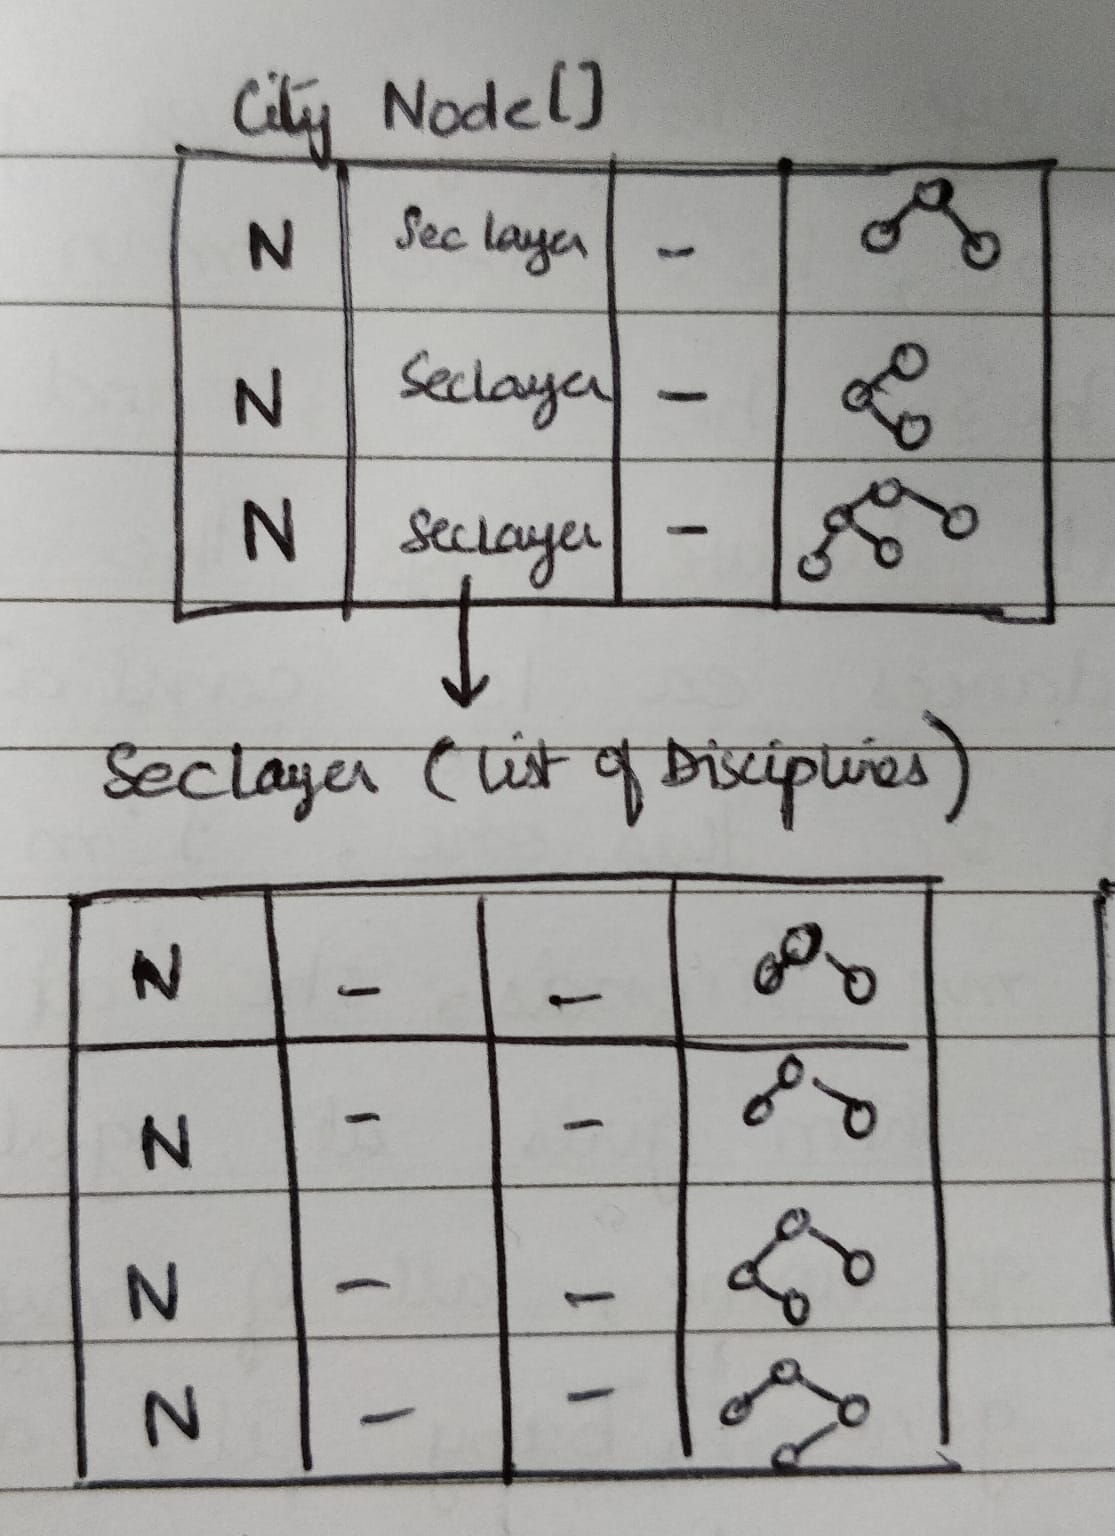 City Node[]
N Sec layer -
N Seclayer -
N Seclayer -
Seclayer (List of Disciplines)
N - -
N - -
N - -
N - -